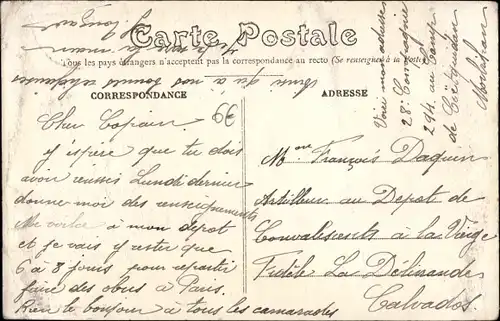 Carte Postale
Tous les pays étrangers n'acceptent pas la correspondance au recto (Se renseigner à la Poste)
CORRESPONDANCE
ADRESSE
6€
Cher Copain
j'éspère que tu dois
avoir reussis Lundi dernier
donne moi des renseignements
Me voilà à mon depot
et je vais y rester que
6 à 8 jours pour repartir
faire des obus à Paris.
Rien le bonjour à tous les camarades
Voici mon adresse
28e Compagnie
294 au Camp
de Coëtquidan
Morbihan
François Daquin
Artilleur au Depot de
Convalescents à la Vierge
Fidèle La Délivrande
Calvados